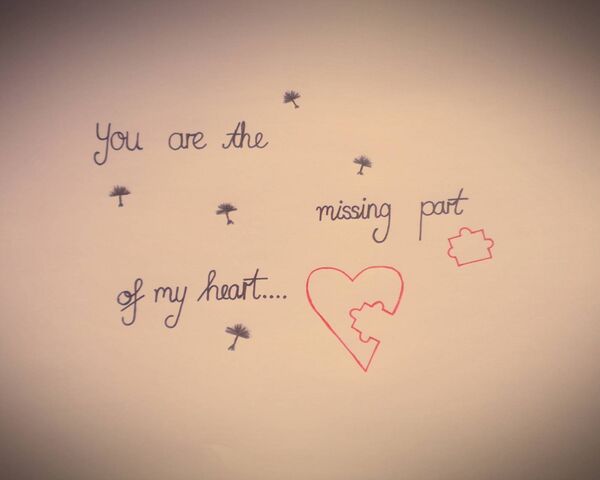 You are the
missing part
of my heart....